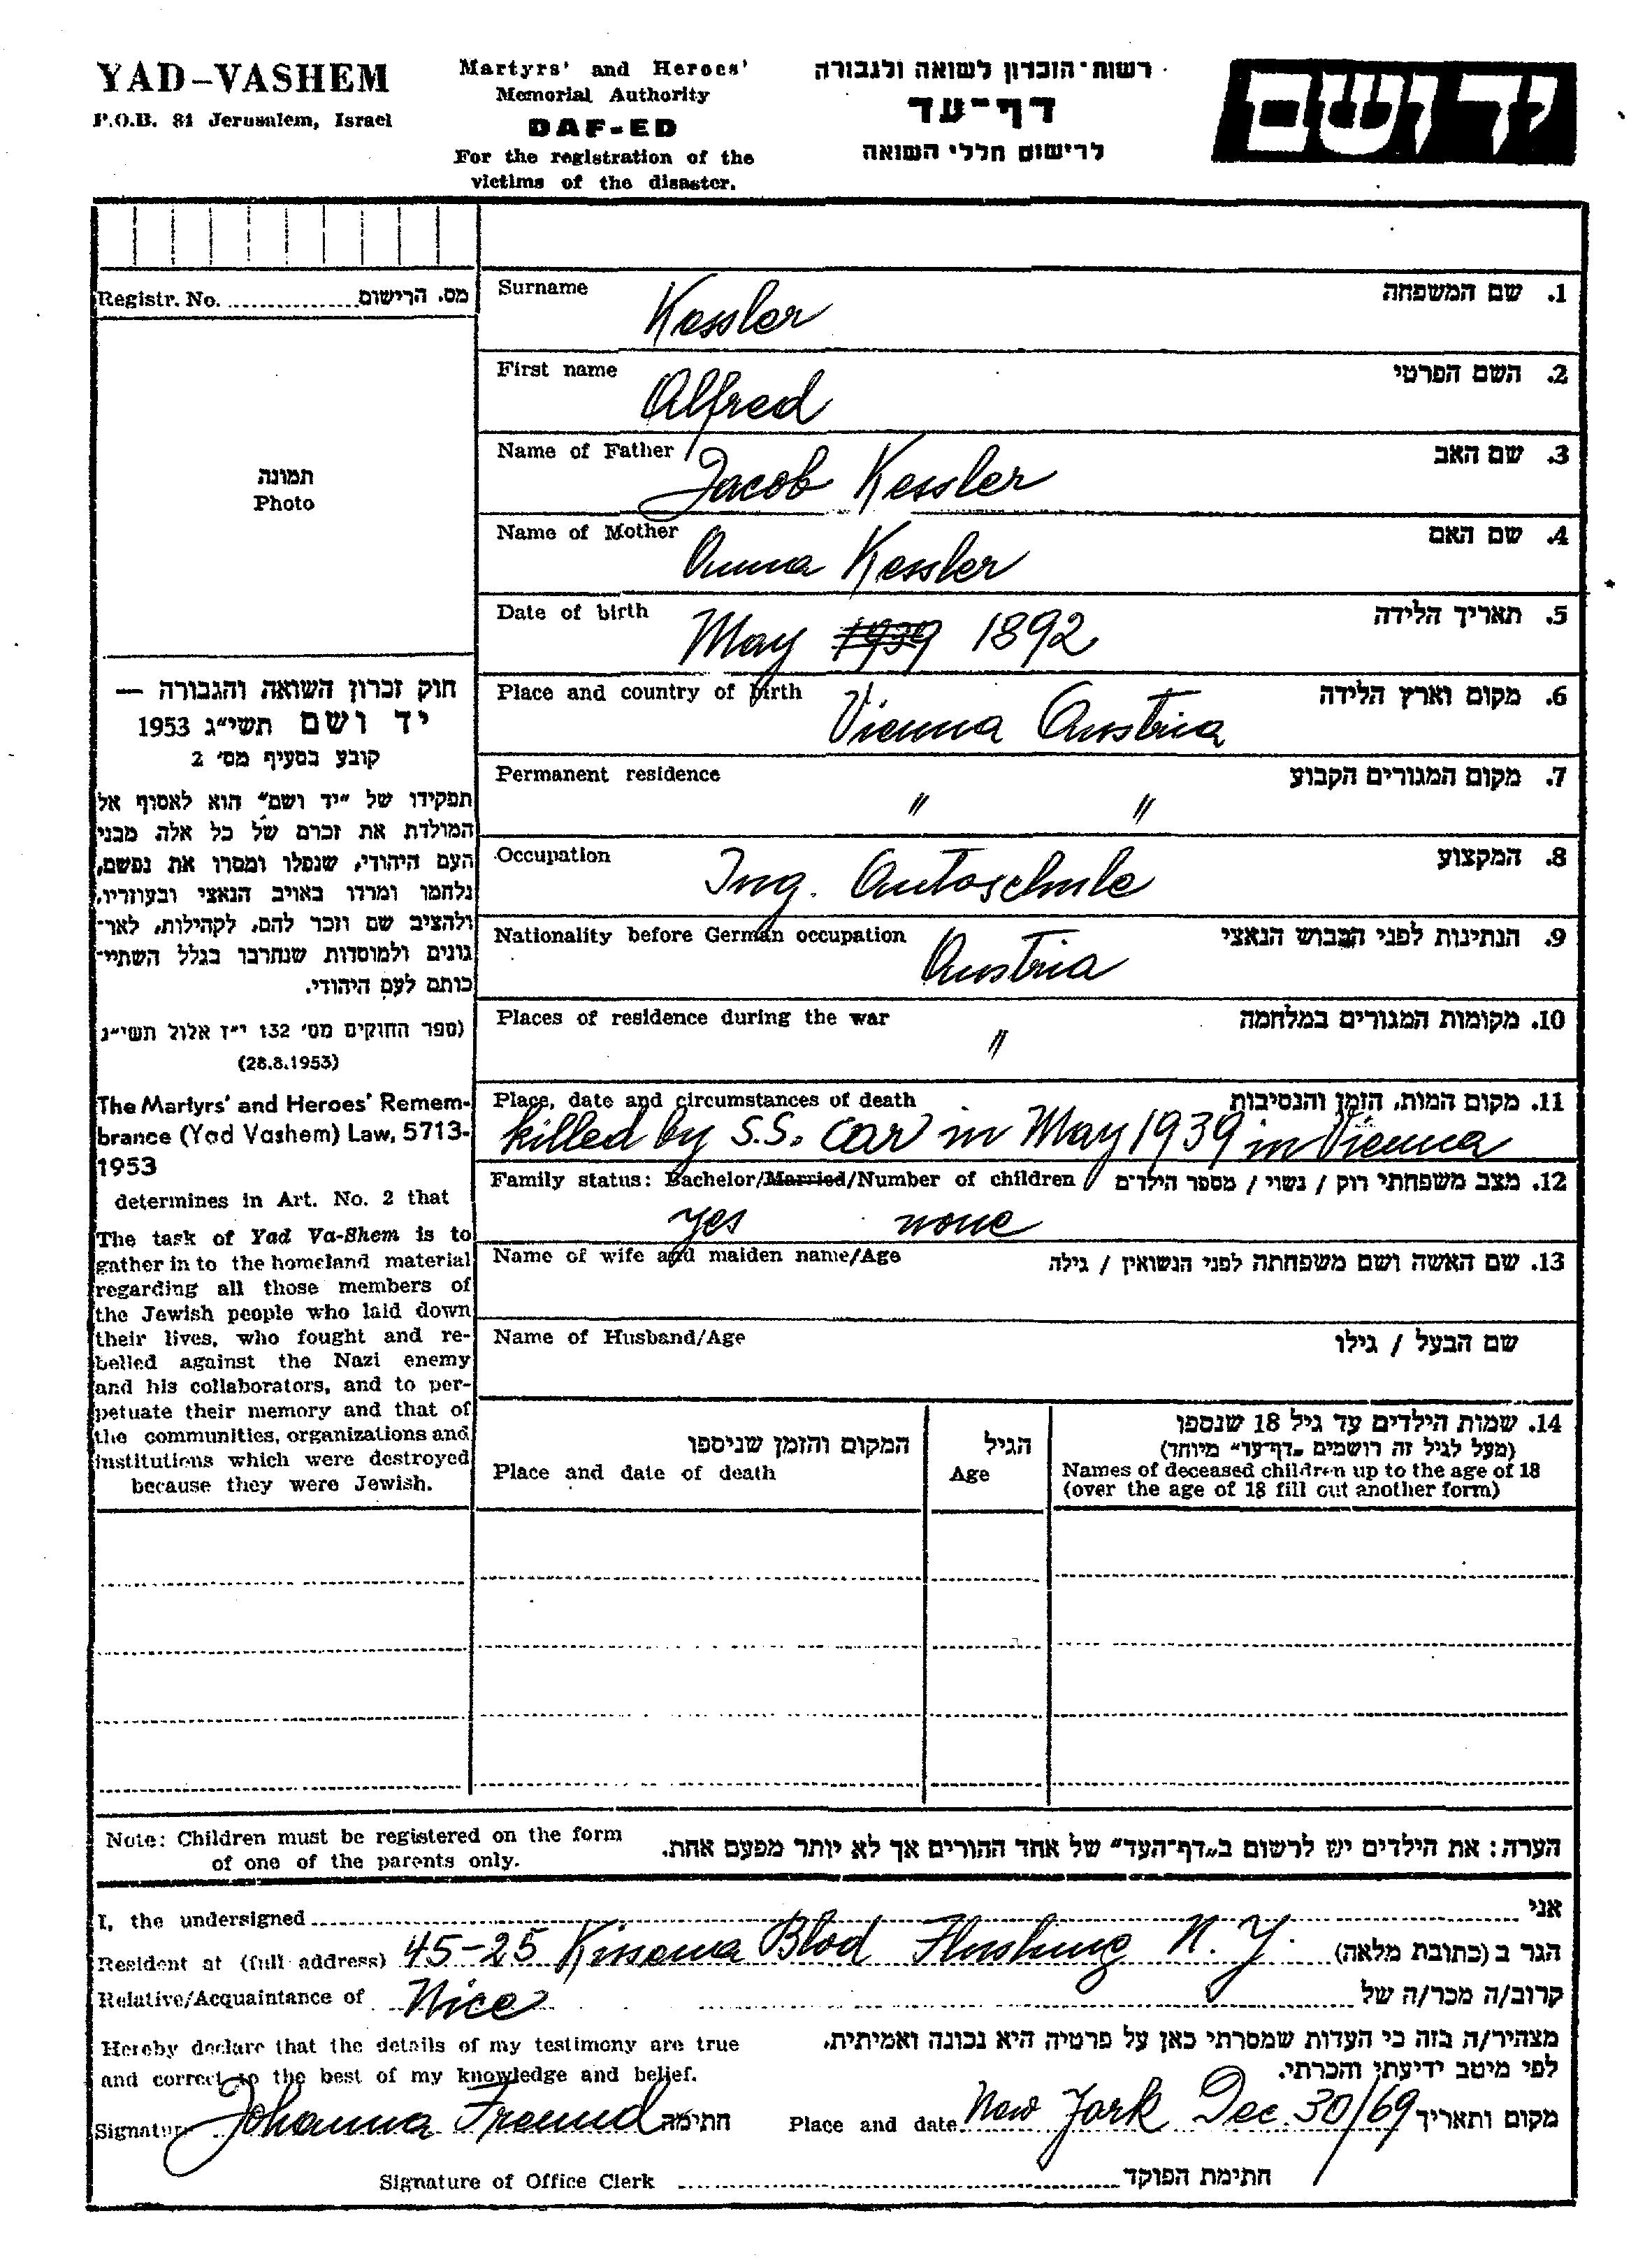 YAD-VASHEM
P.O.B. 84 Jerusalem, Israel
Martyrs' and Heroes'
Memorial Authority
DAF-ED
For the registration of the
victims of the disaster.
רשות-הזכרון לשואה ולגבורה
דף-עד
לרישום חללי השואה
יד ושם
Registr. No. .............. מס. הרישום
תמונה
Photo
חוק זכרון השואה והגבורה —
יד ושם תשי״ג 1953
קובע בסעיף מס׳ 2
תפקידו של ״יד ושם״ הוא לאסוף אל
המולדת את זכרם של כל אלה מבני
העם היהודי, שנפלו ומסרו את נפשם,
נלחמו ומרדו באויב הנאצי ובעוזריו,
ולהציב שם וזכר להם, לקהילות, לאר-
גונים ולמוסדות שנחרבו בגלל השתיי-
כותם לעם היהודי.
(ספר החוקים מס׳ 132 י״ז אלול תשי״ג
(28.8.1953)
The Martyrs' and Heroes' Remem-
brance (Yad Vashem) Law, 5713-
1953
determines in Art. No. 2 that
The task of Yad Va-Shem is to
gather in to the homeland material
regarding all those members of
the Jewish people who laid down
their lives, who fought and re-
belled against the Nazi enemy
and his collaborators, and to per-
petuate their memory and that of
the communities, organizations and
institutions which were destroyed
because they were Jewish.
Surname Kessler 1. שם המשפחה
First name Alfred 2. השם הפרטי
Name of Father Jacob Kessler 3. שם האב
Name of Mother Anna Kessler 4. שם האם
Date of birth May 1939 1892 5. תאריך הלידה
Place and country of birth Vienna Austria 6. מקום וארץ הלידה
Permanent residence " " 7. מקום המגורים הקבוע
Occupation Ing. Autoschule 8. המקצוע
Nationality before German occupation Austria 9. הנתינות לפני הכבוש הנאצי
Places of residence during the war " 10. מקומות המגורים במלחמה
Place, date and circumstances of death 11. מקום המות, הזמן והנסיבות
killed by S.S. car in May 1939 in Vienna
Family status: Bachelor/Married/Number of children 12. מצב משפחתי רוק / נשוי / מספר הילדים
yes none
Name of wife and maiden name/Age 13. שם האשה ושם משפחתה לפני הנשואין / גילה
Name of Husband/Age שם הבעל / גילו
14. שמות הילדים עד גיל 18 שנספו
(מעל לגיל זה רושמים ״דף-עד״ מיוחד)
Names of deceased children up to the age of 18
(over the age of 18 fill out another form)
הגיל
Age
המקום והזמן שניספו
Place and date of death
Note: Children must be registered on the form
of one of the parents only.
הערה: את הילדים יש לרשום ב״דף-העד״ של אחד ההורים אך לא יותר מפעם אחת.
I, the undersigned אני
Resident at (full address) 45-25 Kissena Blvd Flushing N.Y. הגר ב (כתובת מלאה)
Relative/Acquaintance of Nice קרוב/ה מכר/ה של
Hereby declare that the details of my testimony are true
and correct to the best of my knowledge and belief.
מצהיר/ה בזה כי העדות שמסרתי כאן על פרטיה היא נכונה ואמיתית.
לפי מיטב ידיעתי והכרתי.
Signature Johanna Freund חתימה Place and date New York Dec. 30/69 מקום ותאריך
Signature of Office Clerk חתימת הפוקד